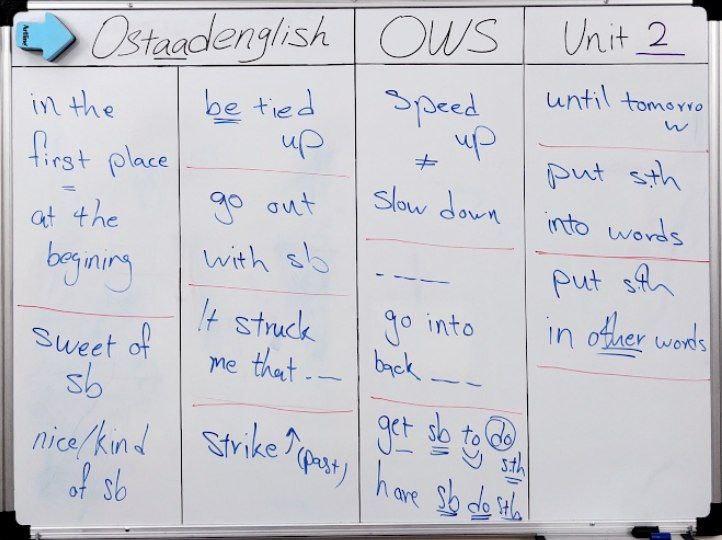 Artline
Ostaadenglish
OWS
Unit 2
in the
first place
=
at the
begining
sweet of
sb
nice/kind
of sb
be tied
up
go out
with sb
It struck
me that _ _
strike ↑ (past)
Speed
up
≠
slow down
_ _ _ _
go into
back _ _ _
get sb to do
sth
have sb do sth
until tomorro
w
put sth
into words
put sth
in other words